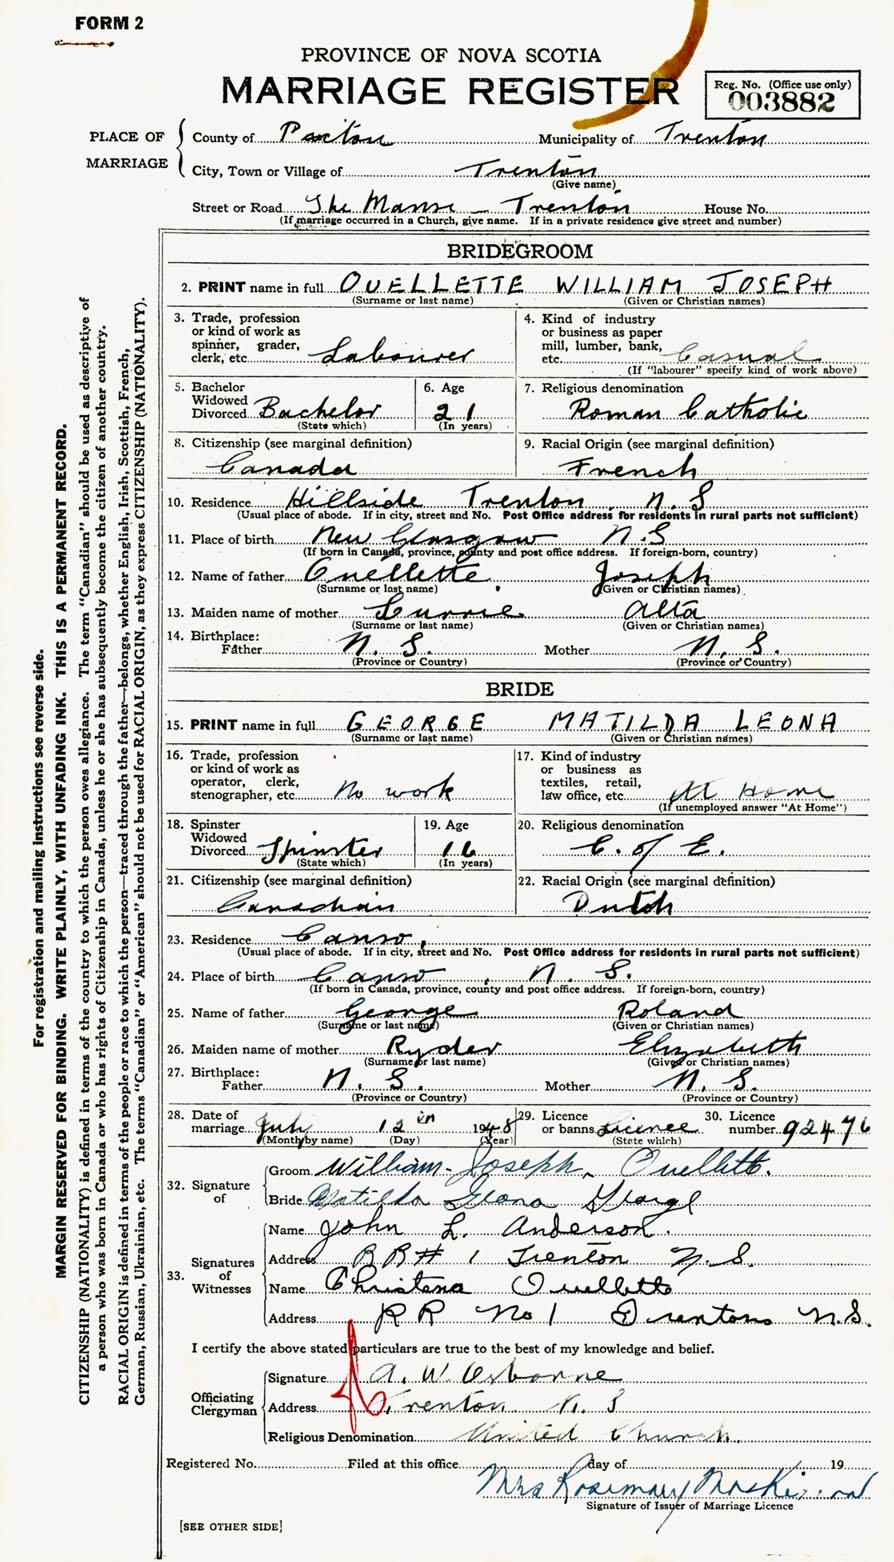 FORM 2
PROVINCE OF NOVA SCOTIA
MARRIAGE REGISTER
Reg. No. (Office use only)
003882
PLACE OF MARRIAGE
County of Pictou Municipality of Trenton
City, Town or Village of Trenton
(Give name)
Street or Road The Manse - Trenton House No.
(If marriage occurred in a Church, give name. If in a private residence give street and number)
BRIDEGROOM
2. PRINT name in full OUELLETTE WILLIAM JOSEPH
(Surname or last name) (Given or Christian names)
3. Trade, profession or kind of work as spinner, grader, clerk, etc. Labourer
4. Kind of industry or business as paper mill, lumber, bank, etc. Casual
(If "labourer" specify kind of work above)
5. Bachelor Widowed Divorced Bachelor
(State which)
6. Age 21
(In years)
7. Religious denomination
Roman Catholic
8. Citizenship (see marginal definition)
Canada
9. Racial Origin (see marginal definition)
French
10. Residence Hillside Trenton N.S
(Usual place of abode. If in city, street and No. Post Office address for residents in rural parts not sufficient)
11. Place of birth New Glasgow N.S
(If born in Canada, province, county and post office address. If foreign-born, country)
12. Name of father Ouellette Joseph
(Surname or last name) (Given or Christian names)
13. Maiden name of mother Currie Alta
(Surname or last name) (Given or Christian names)
14. Birthplace:
Father N. S. Mother N. S.
(Province or Country) (Province or Country)
BRIDE
15. PRINT name in full GEORGE MATILDA LEONA
(Surname or last name) (Given or Christian names)
16. Trade, profession or kind of work as operator, clerk, stenographer, etc. No work
17. Kind of industry or business as textiles, retail, law office, etc. At Home
(If unemployed answer "At Home")
18. Spinster Widowed Divorced Spinster
(State which)
19. Age 16
(In years)
20. Religious denomination
C. of E.
21. Citizenship (see marginal definition)
Canadian
22. Racial Origin (see marginal definition)
Dutch
23. Residence Canso,
(Usual place of abode. If in city, street and No. Post Office address for residents in rural parts not sufficient)
24. Place of birth Canso, N. S.
(If born in Canada, province, county and post office address. If foreign-born, country)
25. Name of father George Roland
(Surname or last name) (Given or Christian names)
26. Maiden name of mother Ryder Elizabeth
(Surname or last name) (Given or Christian names)
27. Birthplace:
Father N. S. Mother N. S.
(Province or Country) (Province or Country)
28. Date of marriage July 12 1948
(Month by name) (Day) (Year)
29. Licence or banns Licence
(State which)
30. Licence number 92476
32. Signature of
Groom William Joseph Ouellette.
Bride Matilda Leona George
33. Signatures of Witnesses
Name John L. Anderson.
Address RR# 1 Trenton N.S.
Name Christena Ouellette
Address RR No 1 Trenton N.S.
I certify the above stated particulars are true to the best of my knowledge and belief.
Officiating Clergyman
Signature A. W. Osborne
Address Trenton N. S
Religious Denomination United Church.
Registered No. Filed at this office day of 19
Mrs Rosemary
Signature of Issuer of Marriage Licence
[SEE OTHER SIDE]
For registration and mailing instructions see reverse side.
MARGIN RESERVED FOR BINDING. WRITE PLAINLY, WITH UNFADING INK. THIS IS A PERMANENT RECORD.
CITIZENSHIP (NATIONALITY) is defined in terms of the country to which the person owes allegiance. The term "Canadian" should be used as descriptive of
a person who was born in Canada or who has rights of Citizenship in Canada, unless he or she has subsequently become the citizen of another country.
RACIAL ORIGIN is defined in terms of the people or race to which the person—traced through the father—belongs, whether English, Irish, Scottish, French,
German, Russian, Ukrainian, etc. The terms "Canadian" or "American" should not be used for RACIAL ORIGIN, as they express CITIZENSHIP (NATIONALITY).